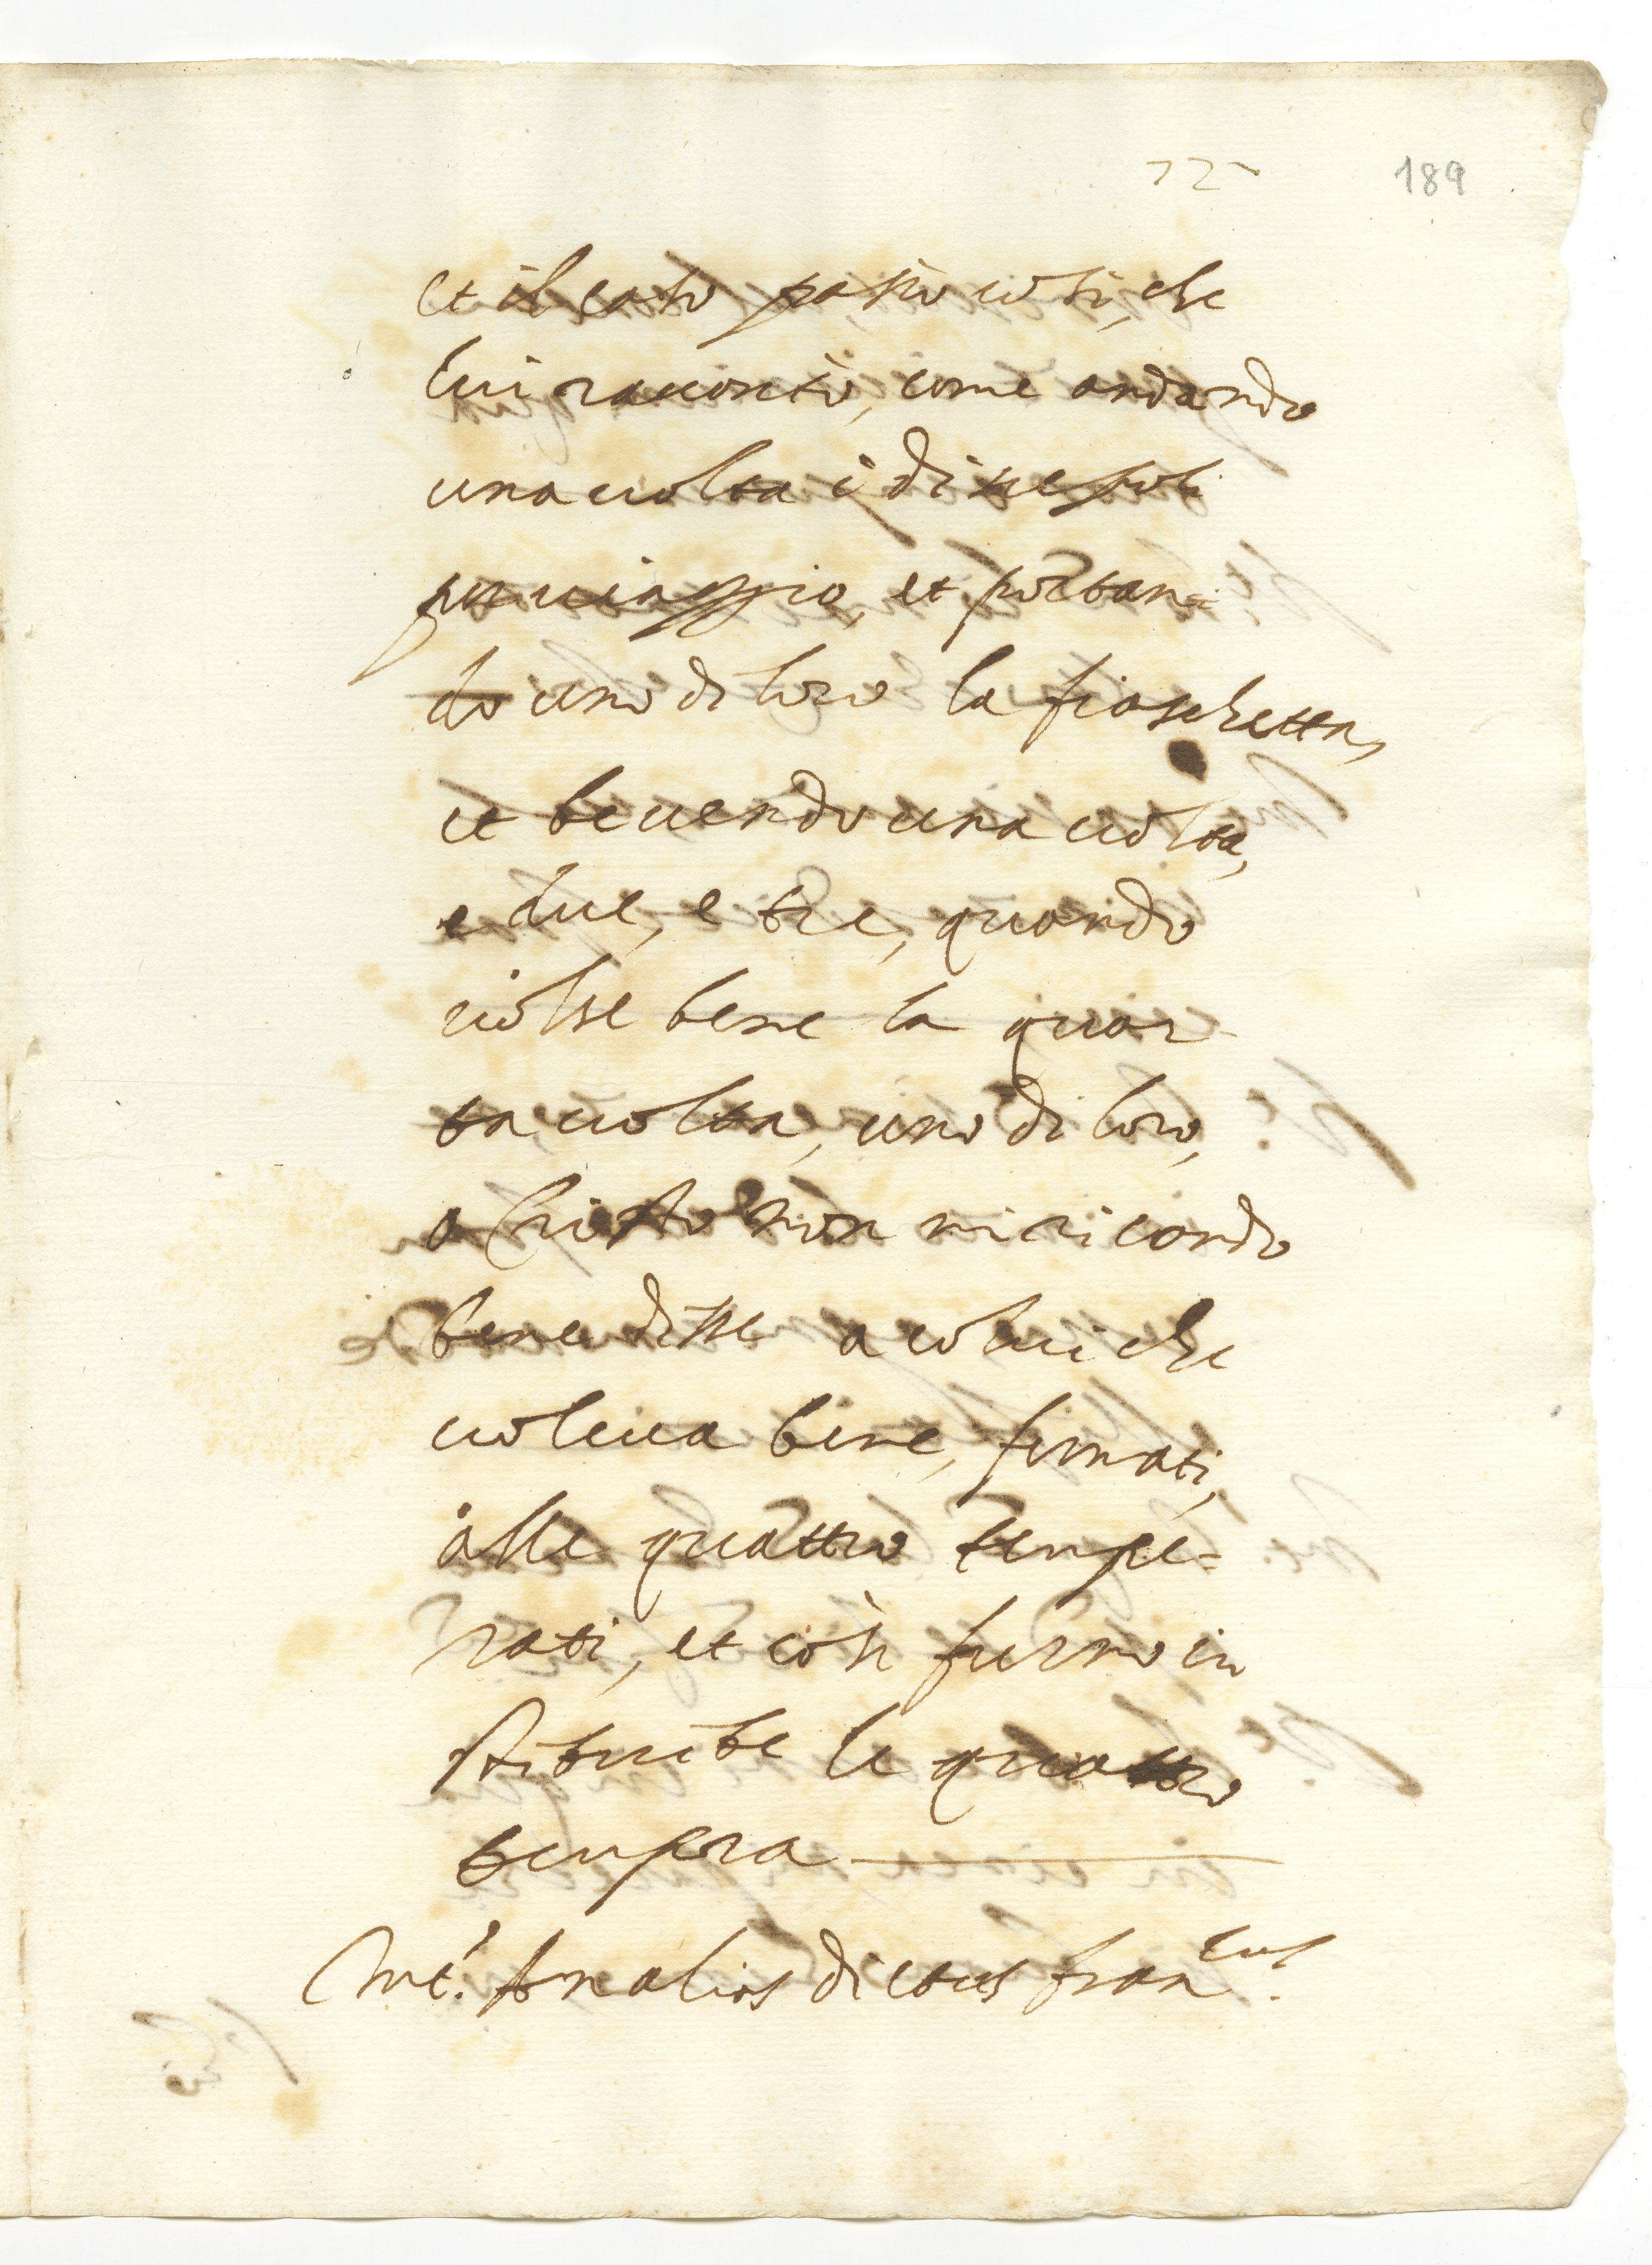 72
189
et il caso passò così, che
lui raccontò, come andando
una uolta i discepoli
per uiaggio, et portan
do uno di loro la fiaschetta,
et beuendo una uolta,
e due, e tre, quando
uolse bere la quar
ta uolta, uno di loro,
o Cristo non mi ricordo
bene disse a colui che
uoleua bere, fermati,
alle quattro tempe=
rati, et così furno in
stituite le quattro
tempra
Int.s An alias dictus fran.cus